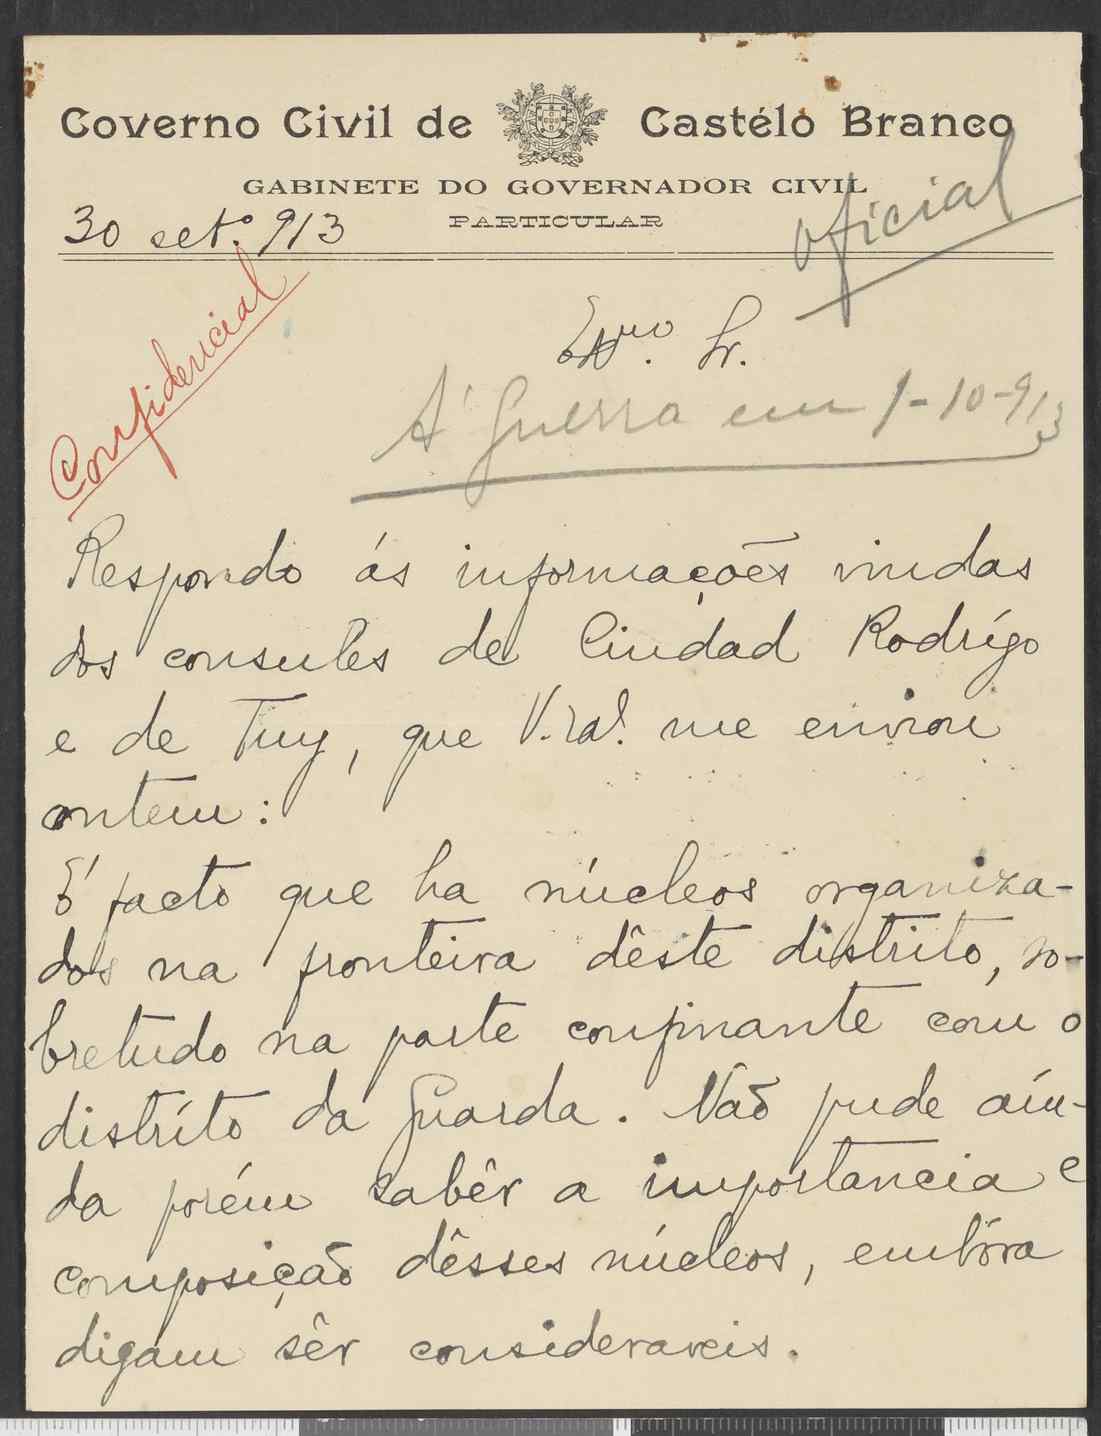 Governo Civil de Castélo Branco
GABINETE DO GOVERNADOR CIVIL
PARTICULAR
30 set.º 913
oficial
Confidencial
Exmo. Sr.
Á Guerra em 1-10-913
Respondo ás informações vindas
dos consules de Ciudad Rodrígo
e de Tuy, que V. Exa. me enviou
ontem:
É facto que ha núcleos organiza-
dos na fronteira dêste distrito, so-
bretudo na parte confinante com o
distríto da Guarda. Não pude aín-
da porém sabêr a importancia e
composição dêsses núcleos, embóra
digam sêr consideraveis.